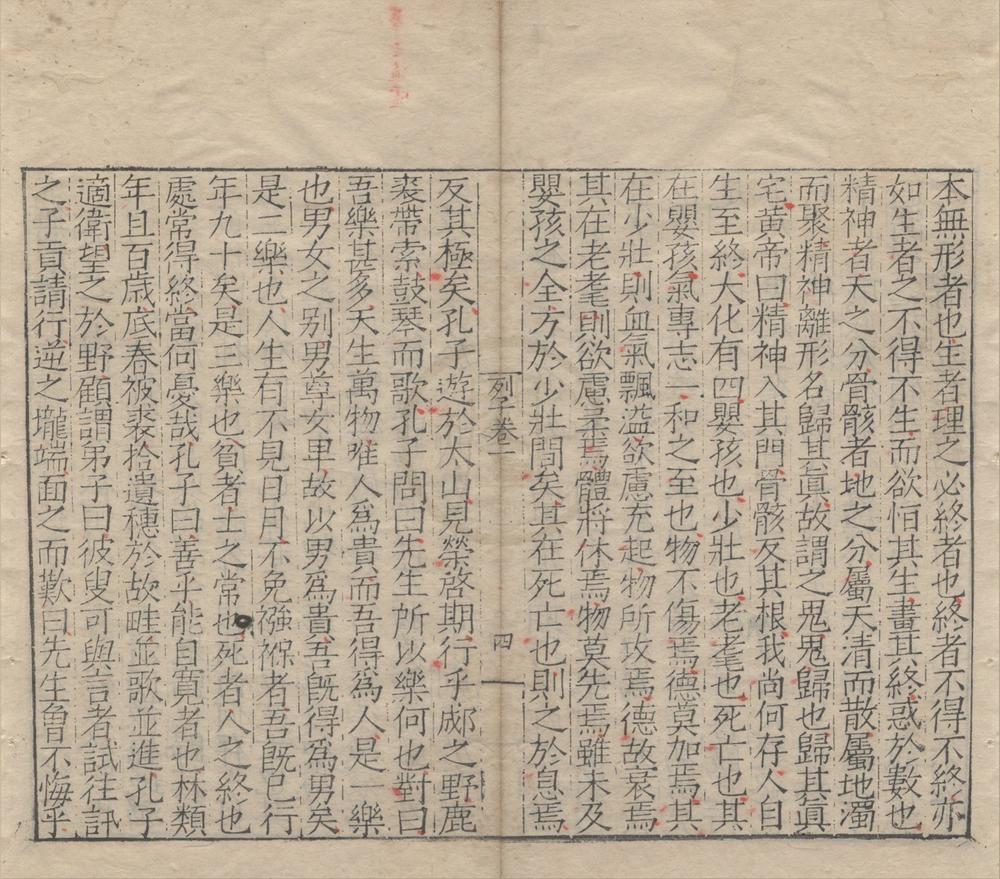 本無形者也生者理之必終者也終者不得不終亦
如生者之不得不生而欲恒其生畫其終惑於數也
精神者天之分骨骸者地之分屬天清而散屬地濁
而聚精神離形各歸其眞故謂之鬼鬼歸也歸其眞
宅黃帝曰精神入其門骨骸反其根我尚何存人自
生至終大化有四嬰孩也少壯也老耄也死亡也其
在嬰孩氣專志一和之至也物不傷焉德莫加焉其
在少壯則血氣飄溢欲慮充起物所攻焉德故衰焉
其在老耄則欲慮柔焉體將休焉物莫先焉雖未及
嬰孩之全方於少壯間矣其在死亡也則之於息焉
列子卷一
四
反其極矣孔子遊於太山見榮啓期行乎郕之野鹿
裘帶索鼓琴而歌孔子問曰先生所以樂何也對曰
吾樂甚多天生萬物唯人爲貴而吾得爲人是一樂
也男女之别男尊女卑故以男爲貴吾旣得爲男矣
是二樂也人生有不見日月不免襁褓者吾旣已行
年九十矣是三樂也貧者士之常也死者人之終也
處常得終當何憂哉孔子曰善乎能自寬者也林類
年且百歲底春被裘拾遺穗於故畦並歌並進孔子
適衛望之於野顧謂弟子曰彼叟可與言者試往訊
之子貢請行逆之壠端面之而歎曰先生曾不悔乎